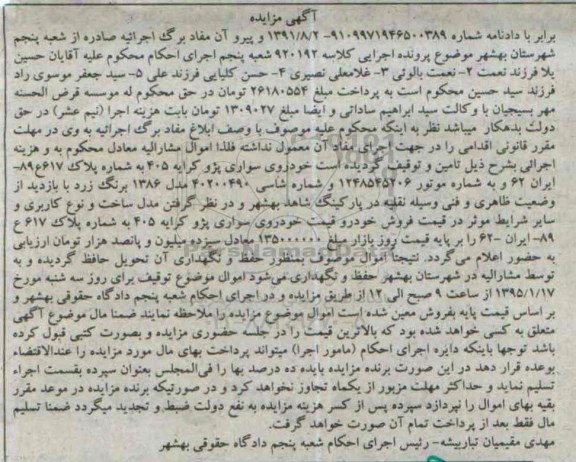 آگهی مزایده
برابر با دادنامه شماره ۹۱۰۹۹۷۱۹۴۶۵۰۰۳۸۹-۱۳۹۱/۸/۲ و پیرو آن مفاد برگ اجرائیه صادره از شعبه پنجم
شهرستان بهشهر موضوع پرونده اجرایی کلاسه ۹۲۰۱۹۲ شعبه پنجم اجرای احکام محکوم علیه آقایان حسین
یلا فرزند نعمت ۲- نعمت بالوئی ۳- غلامعلی نصیری ۴- حسن کلبایی فرزند علی ۵- سید جعفر موسوی راد
فرزند سید حسین محکوم است به پرداخت مبلغ ۲۶۱۸۰۵۵۴ تومان در حق محکوم له موسسه قرض الحسنه
مهر بسیجیان با وکالت سید ابراهیم ساداتی و ایضا مبلغ ۱۳۰۹۰۲۷ تومان بابت هزینه اجرا (نیم عشر) در حق
دولت بدهکار میباشد نظر به اینکه محکوم علیه موصوف با وصف ابلاغ مفاد برگ اجرائیه به وی در مهلت
مقرر قانونی اقدامی را در جهت اجرای مفاد آن معمول نداشته فلذا اموال مشارالیه معادل محکوم به و هزینه
اجرائی بشرح ذیل تامین و توقیف گردیده است خودروی سواری پژو کرایه ۴۰۵ به شماره پلاک ۶۱۷ع۸۹-
ایران ۶۲ و به شماره موتور ۱۲۴۸۵۴۵۲۰۶ و شماره شاسی ۴۰۲۰۰۴۹۰ مدل ۱۳۸۶ برنگ زرد با بازدید از
وضعیت ظاهری و فنی وسیله نقلیه در پارکینگ شاهد بهشهر و در نظر گرفتن مدل ساخت و نوع کاربری و
سایر شرایط موثر در قیمت فروش خودرو قیمت خودروی سواری پژو کرایه ۴۰۵ به شماره پلاک ۶۱۷ ع
۸۹- ایران -۶۲ را بر پایه قیمت روز بازار مبلغ ۱۳۵۰۰۰۰۰۰ معادل سیزده میلیون و پانصد هزار تومان ارزیابی
به حضور اعلام می‌گردد. نتیجتاً اموال معرفی بمنظور حفظ و نگهداری آن تحویل حافظ گردیده و به
توسط مشارالیه در شهرستان بهشهر حفظ و نگهداری می‌شود اموال موضوع توقیف برای روز سه شنبه مورخ
۱۳۹۵/۱/۱۷ از ساعت ۹ صبح الی ۱۲ از طریق مزایده و در اجرای احکام شعبه پنجم دادگاه حقوقی بهشهر و
بر اساس قیمت پایه بفروش معین شده است اموال موضوع مزایده را ملاحظه نمایند ضمنا مال موضوع آگهی
متعلق به کسی خواهد شده بود که بالاترین قیمت را در جلسه حضوری مزایده و بصورت کتبی قبول کرده
باشد توجها باینکه دایره اجرای احکام (مامور اجرا) میتواند پرداخت بهای مال مورد مزایده را عندالاقتضاء
بوعده قرار دهد در این صورت برنده مزایده باید ده درصد بها را فی‌المجلس بعنوان سپرده بقسمت اجراء
تسلیم نماید و حداکثر مهلت مزبور از یکماه تجاوز نخواهد کرد و در صورتیکه برنده مزایده در موعد مقرر
بقیه بهای اموال را نپردازد سپرده پس از کسر هزینه مزایده به نفع دولت ضبط و تجدید میگردد ضمنا تسلیم
مال فقط بعد از پرداخت تمام آن صورت خواهد گرفت.
مهدی مقیمیان تباربیشه- رئیس اجرای احکام شعبه پنجم دادگاه حقوقی بهشهر